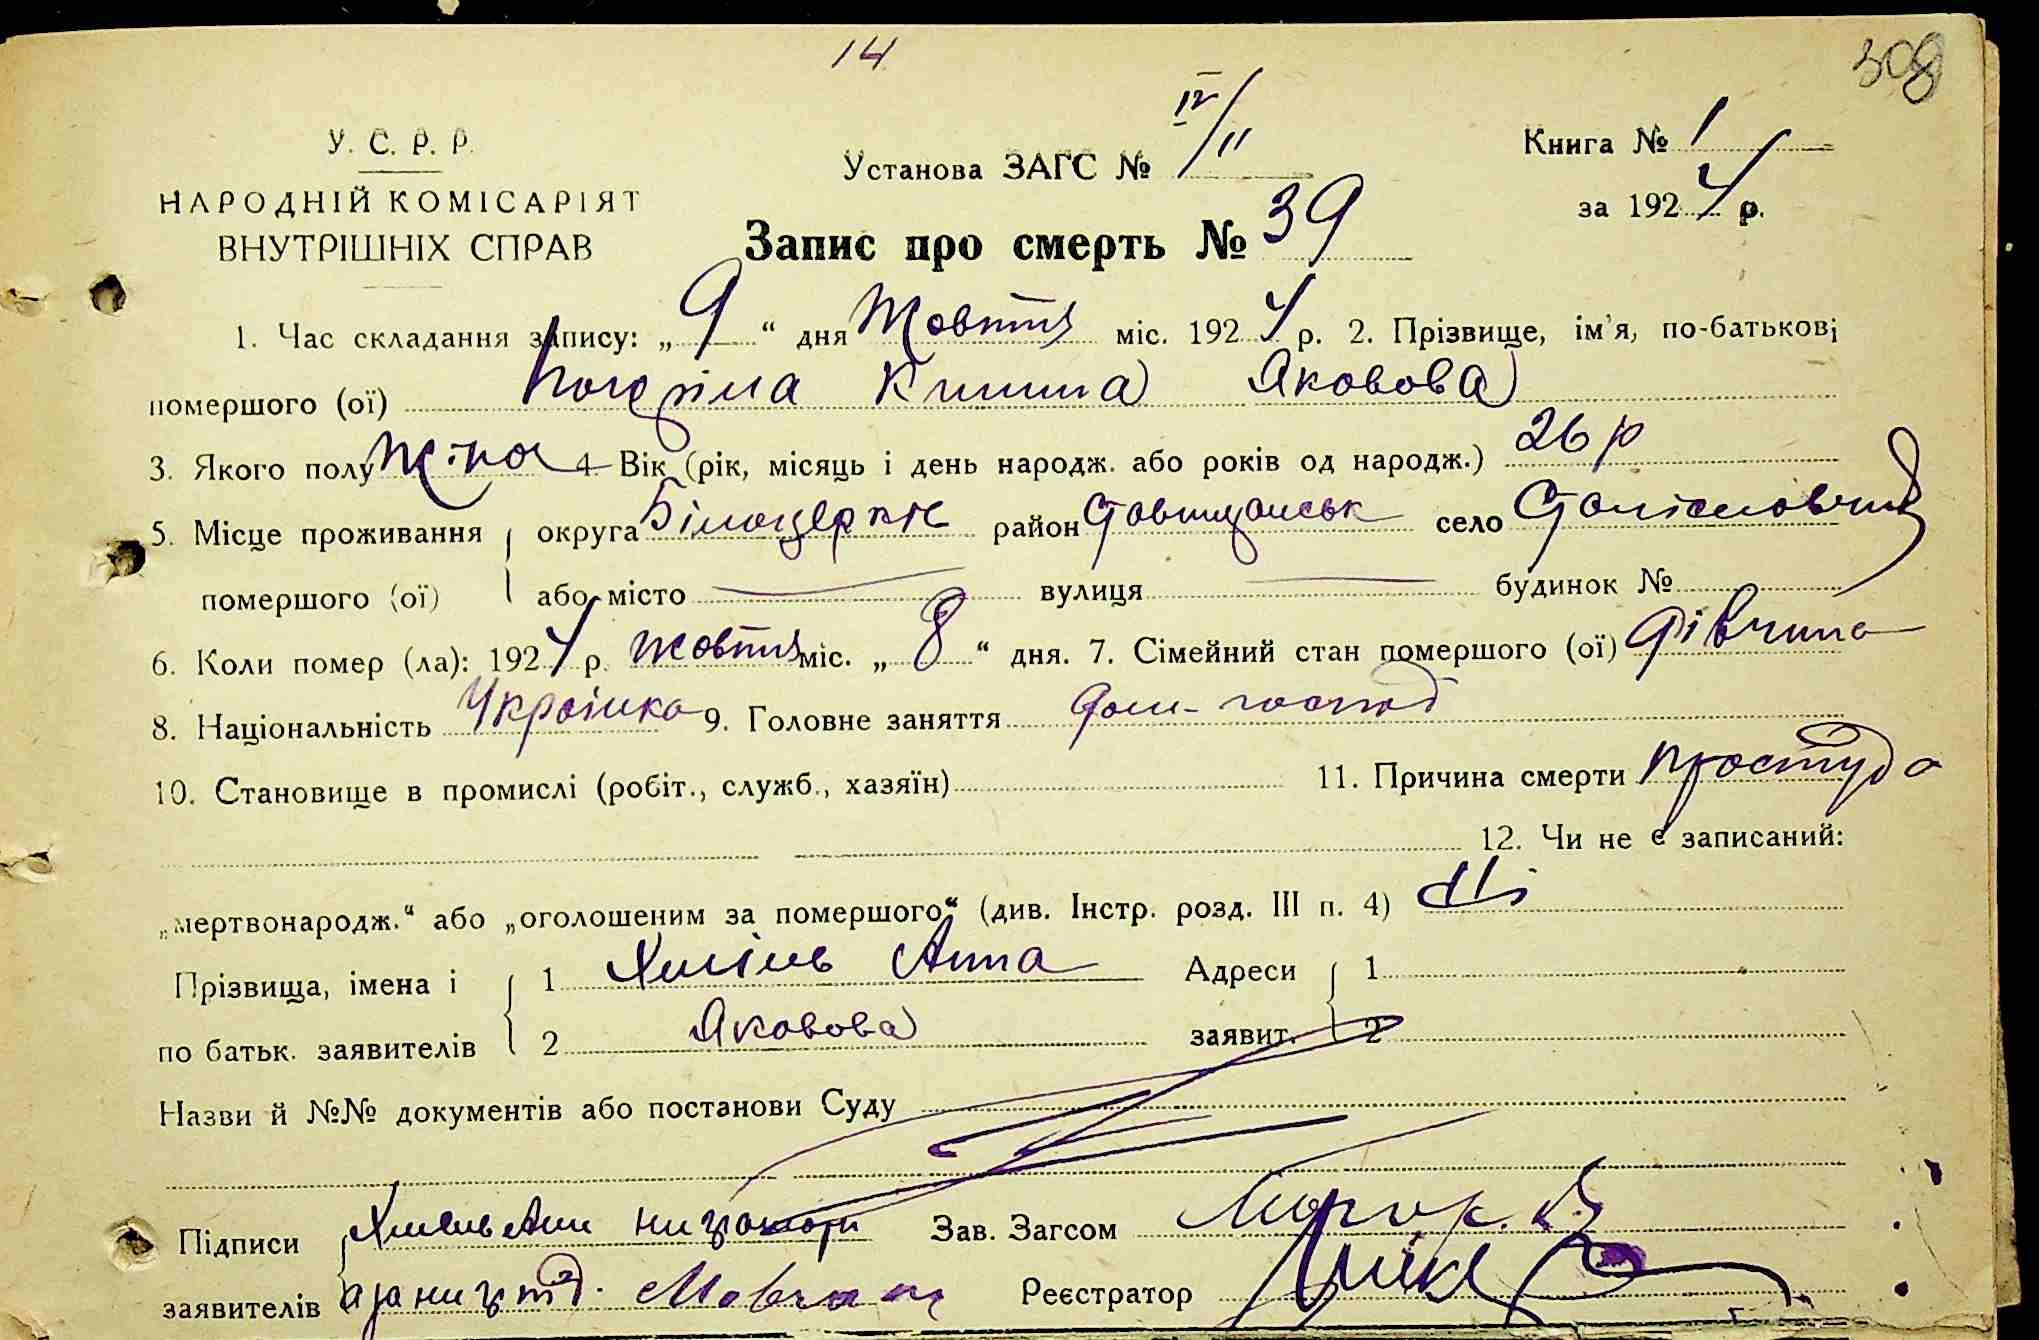 14
308
У. С. Р. Р.
НАРОДНІЙ КОМІСАРІЯТ
ВНУТРІШНІХ СПРАВ
Установа ЗАГС № IV/11
Книга № 1
за 1924 р.
Запис про смерть № 39
1. Час складання запису: „ 9 “ дня Жовтня міс. 1924 р. 2. Прізвище, ім'я, по-батькові
помершого (ої) Яковова
3. Якого полу ж-ка 4. Вік (рік, місяць і день народж. або років од народж.) 26 р
5. Місце проживання округа Білоцерків район Ставищанськ село
помершого (ої) або місто вулиця будинок №
6. Коли помер (ла): 1924 р. жовтня міс. „ 8 “ дня. 7. Сімейний стан помершого (ої) дівчина
8. Національність Українка 9. Головне заняття дом-господ
10. Становище в промислі (робіт., служб., хазяїн) 11. Причина смерти простуда
12. Чи не є записаний:
„мертвонародж.“ або „оголошеним за померого“ (див. Інстр. розд. III п. 4) Ні
Прізвища, імена і 1 Хміль Анна Адреси 1
по батьк. заявителів 2 Яковова заявит. 2
Назви й №№ документів або постанови Суду
Підписи Хміль Анни Зав. Загсом
заявителів Мовчан Реєстратор